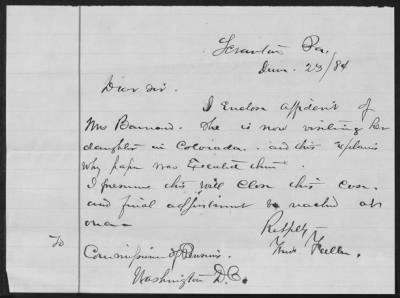 Scranton Pa.
June 23/84
Dear Sir.
I Enclose affidavit of
Mrs Barnard. She is now visiting her
daughter in Colorado. and this explains
why paper was Executed there.
I presume this will Close this Case.
and final adjustment be reached at
once
Respfly
Fred Fuller.
To
Commissioner of Pensions.
Washington D.C.